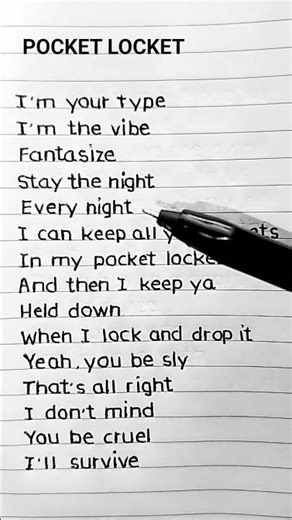 POCKET LOCKET
I'm your type
I'm the vibe
Fantasize
Stay the night
Every night
I can keep all
In my pocket
And then I keep ya
Held down
When I lock and drop it
Yeah, you be sly
That's all right
I don't mind
You be cruel
I'll survive